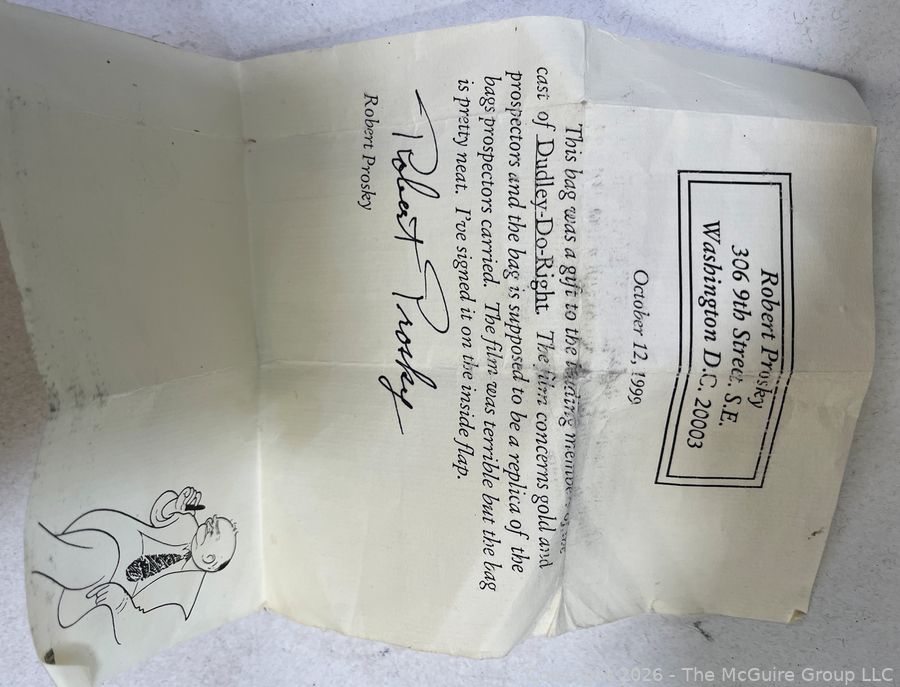 Robert Prosky
306 9th Street S.E.
Washington D.C. 20003
October 12, 1999
This bag was a gift to the leading members of the
cast of Dudley-Do-Right. The film concerns gold and
prospectors and the bag is supposed to be a replica of the
bags prospectors carried. The film was terrible but the bag
is pretty neat. I've signed it on the inside flap.
Robert Prosky
Robert Prosky
2026 - The McGuire Group LLC